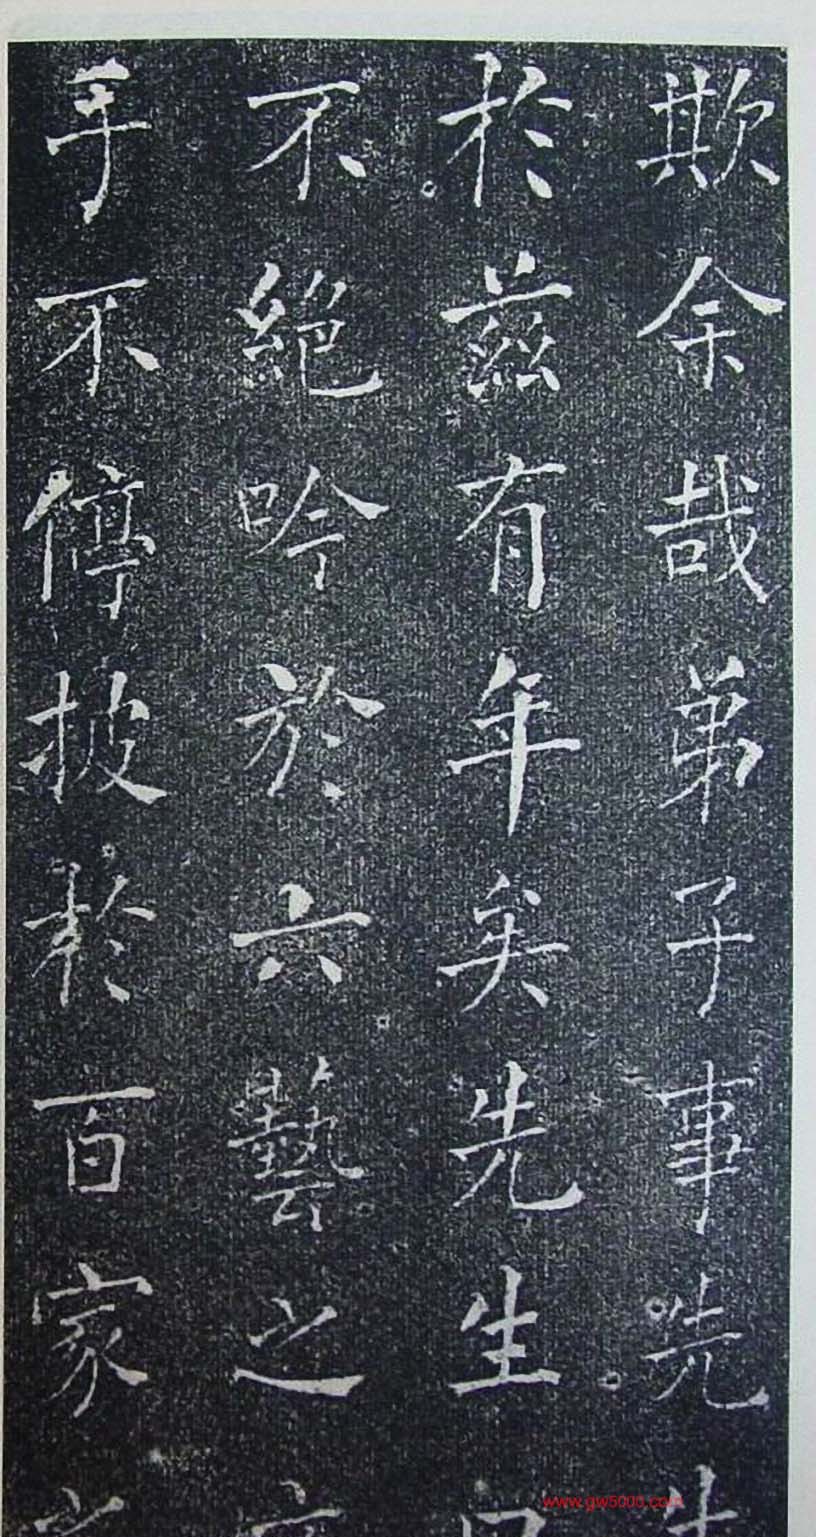 欺余哉弟子事先生
於茲有年矣先生口
不絕吟於六藝之文
手不停披於百家之
www.gw5000.com